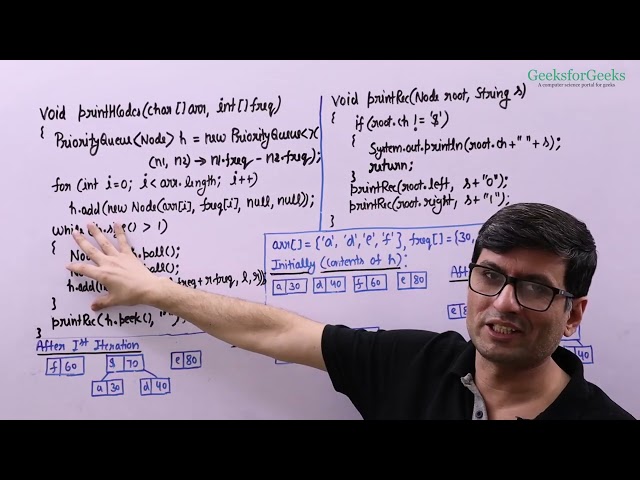 GeeksforGeeks
A computer science portal for geeks
void printHCodes(char []arr, int[] freq)
{ PriorityQueue<Node> h = new PriorityQueue<>(
(n1, n2) → n1.freq - n2.freq);
for (int i=0; i<arr.length; i++)
h.add(new Node(arr[i], freq[i], null, null));
while () > 1)
{ Node poll();
Node poll();
h.add(new freq + r.freq, l, r));
}
printRec(h.peek(),
}
void printRec(Node root, String s)
{ if (root.ch != '$')
{ System.out.println(root.ch + " " + s);
return;
}
printRec(root.left, s+"0");
printRec(root.right, s+"1");
}
arr[] = {'a', 'd', 'e', 'f'}, freq[] = {30,
Initially (Contents of h):
a 30 d 40 f 60 e 80
After Ist Iteration
f 60 $ 70 e 80
a 30 d 40
40